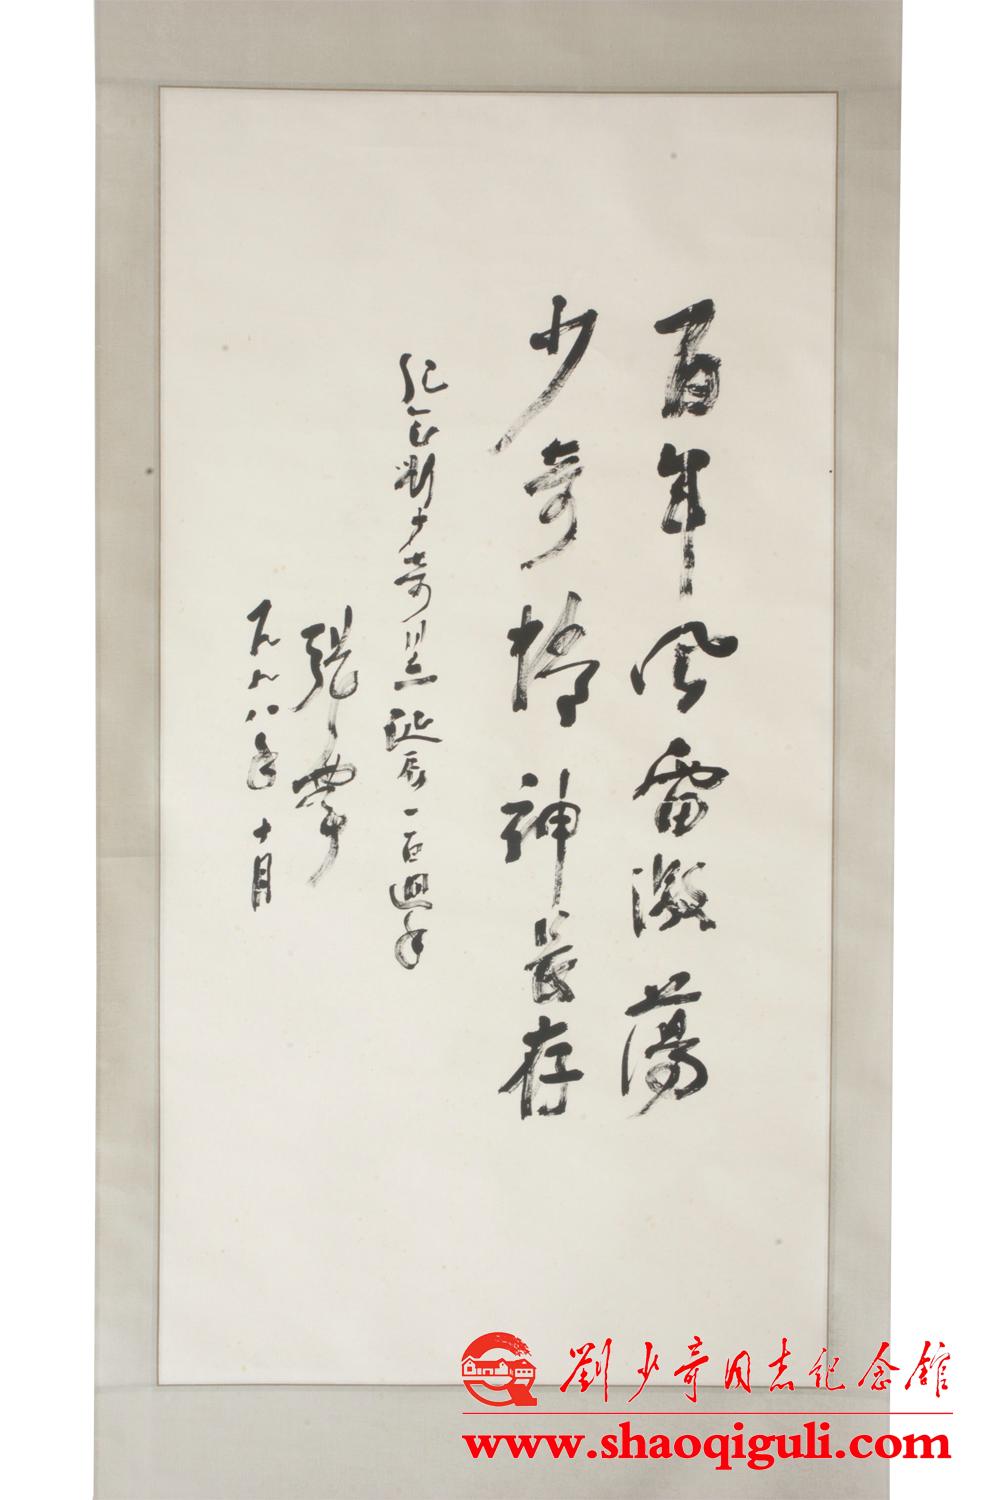 百年风雷激荡
少奇精神长存
纪念刘少奇同志诞辰一百週年
张震
一九九八年十月
劉少奇同志纪念馆
www.shaoqiguli.com